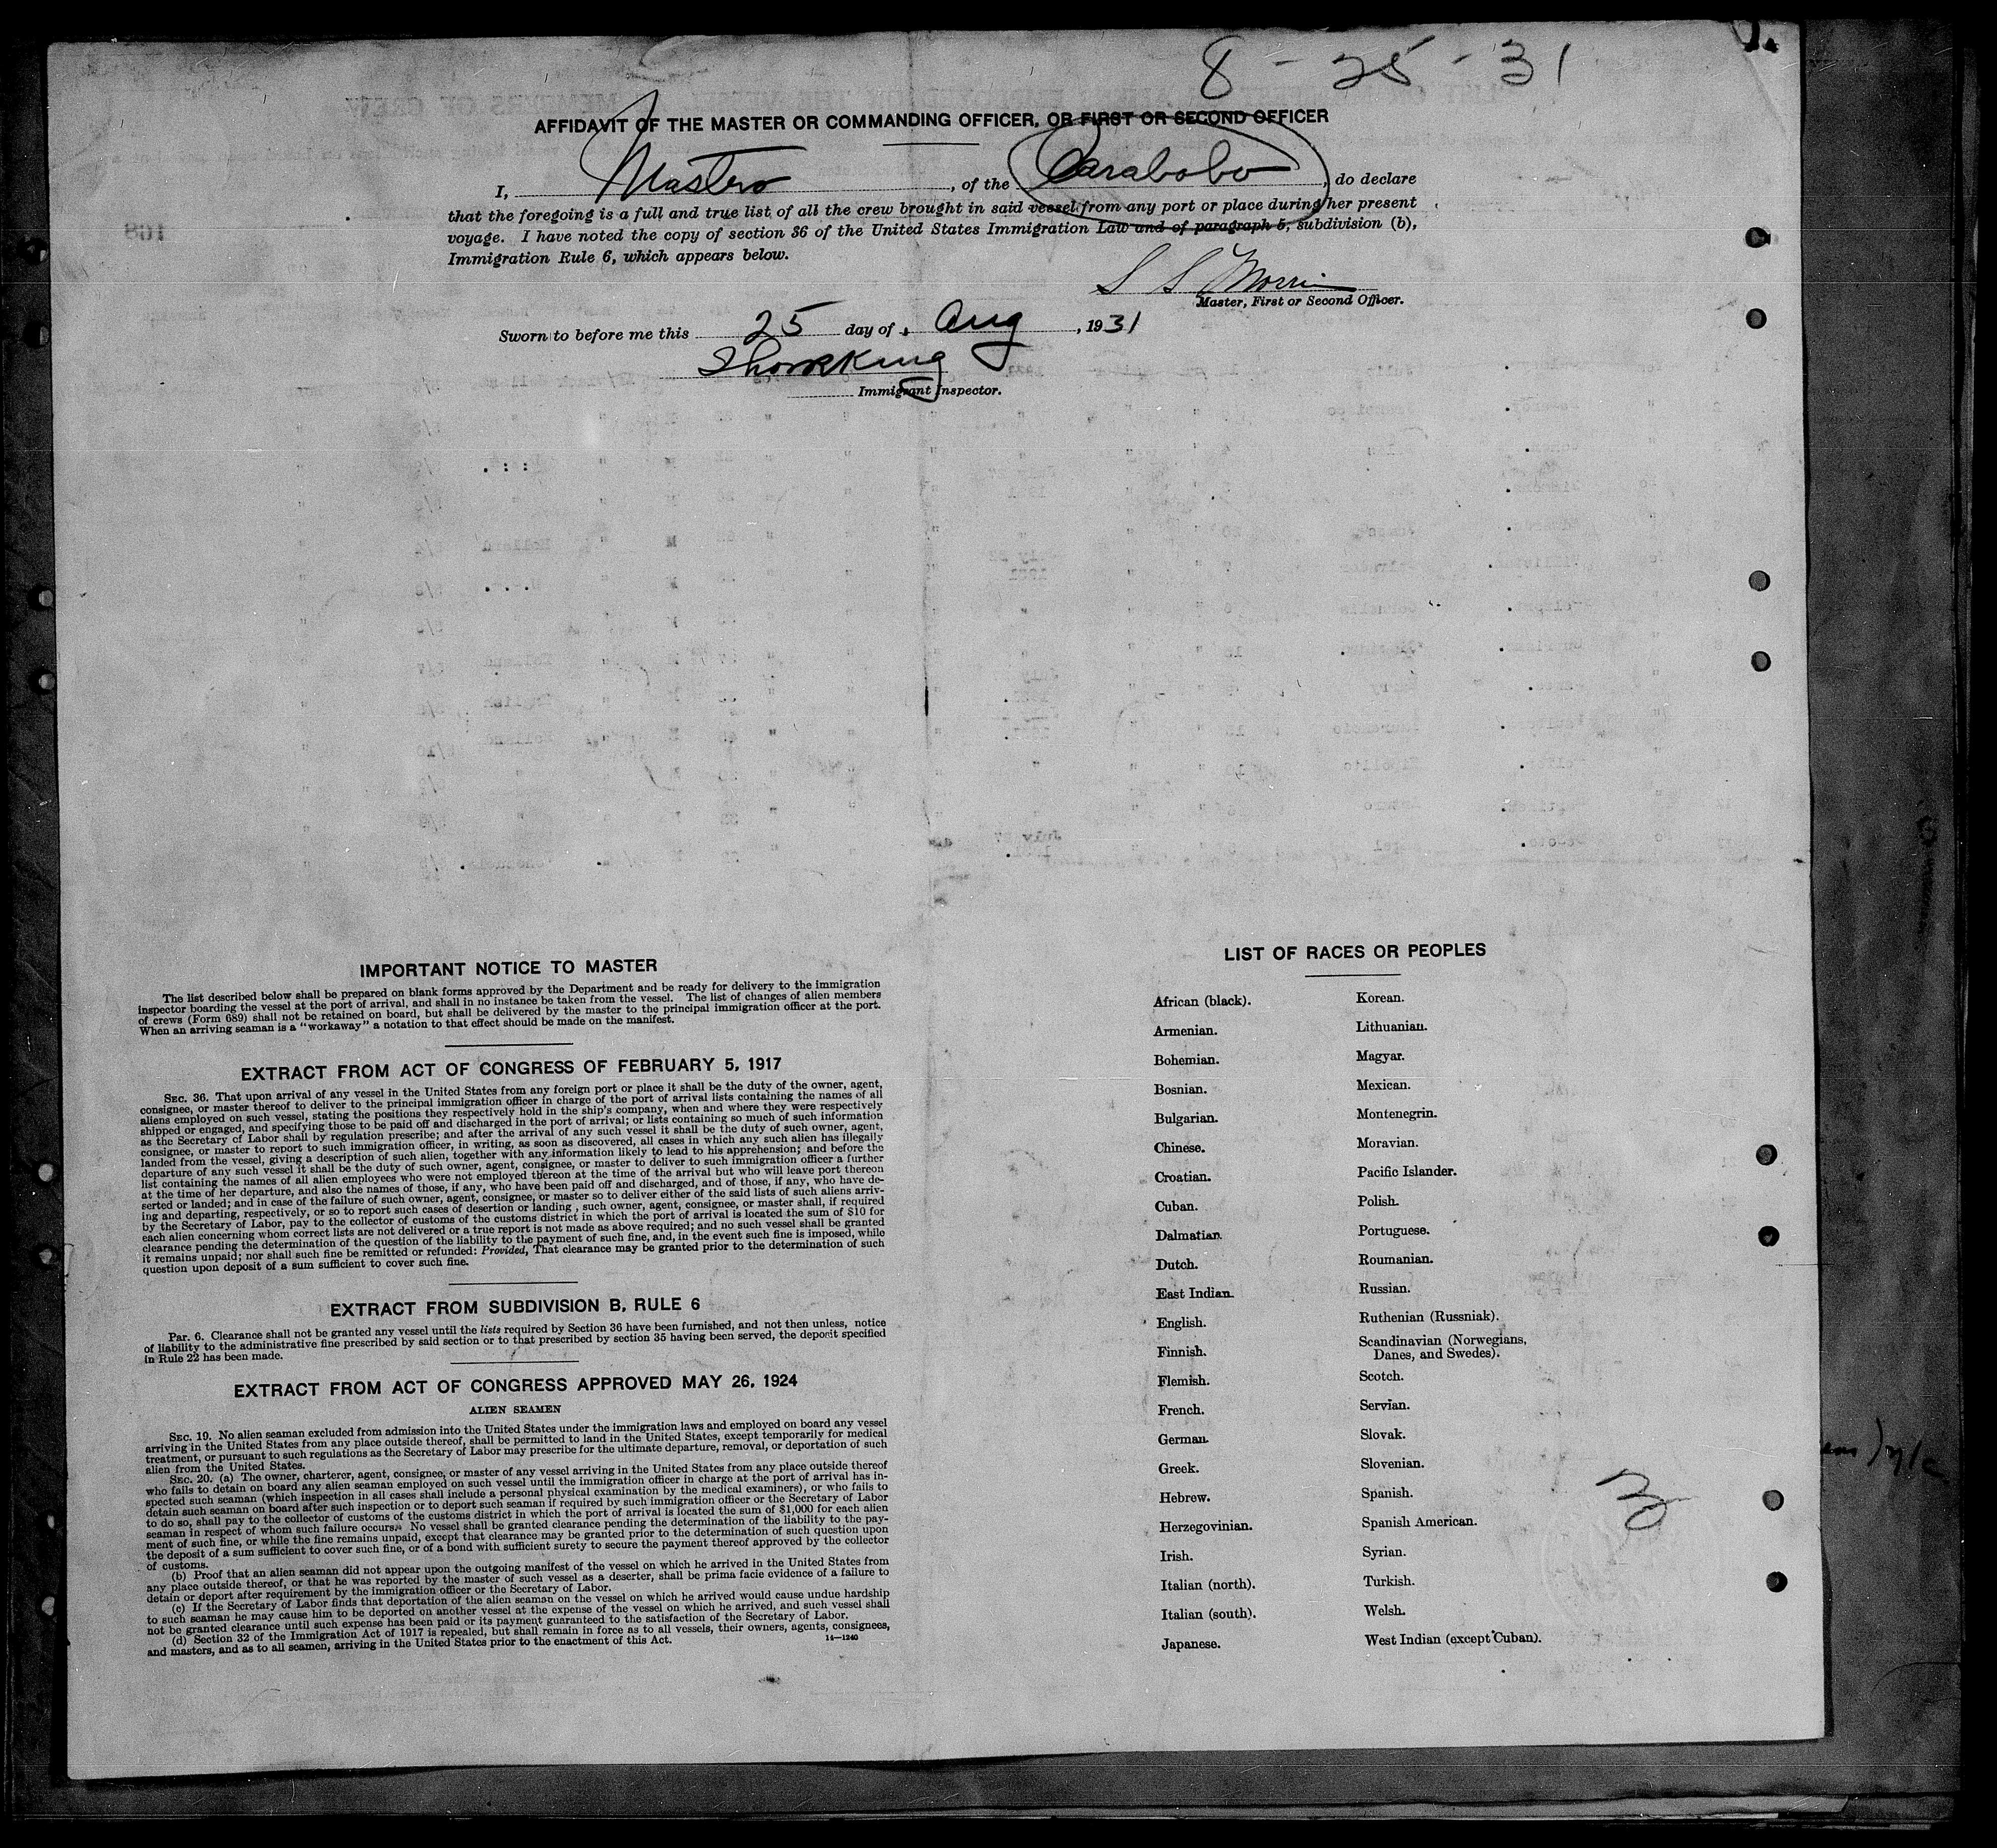 8-25-31
AFFIDAVIT OF THE MASTER OR COMMANDING OFFICER, OR FIRST OR SECOND OFFICER
I, Master, of the Carabobo, do declare
that the foregoing is a full and true list of all the crew brought in said vessel from any port or place during her present
voyage. I have noted the copy of section 36 of the United States Immigration Law and of paragraph 5, subdivision (b),
Immigration Rule 6, which appears below.
S S Morris
Master, First or Second Officer.
Sworn to before me this 25 day of Aug, 1931
Immigrant Inspector.
IMPORTANT NOTICE TO MASTER
The list described below shall be prepared on blank forms approved by the Department and be ready for delivery to the immigration
inspector boarding the vessel at the port of arrival, and shall in no instance be taken from the vessel. The list of changes of alien members
of crews (Form 689) shall not be retained on board, but shall be delivered by the master to the principal immigration officer at the port.
When an arriving seaman is a "workaway" a notation to that effect should be made on the manifest.
EXTRACT FROM ACT OF CONGRESS OF FEBRUARY 5, 1917
SEC. 36. That upon arrival of any vessel in the United States from any foreign port or place it shall be the duty of the owner, agent,
consignee, or master thereof to deliver to the principal immigration officer in charge of the port of arrival lists containing the names of all
aliens employed on such vessel, stating the positions they respectively hold in the ship's company, when and where they were respectively
shipped or engaged, and specifying those to be paid off and discharged in the port of arrival; or lists containing so much of such information
as the Secretary of Labor shall by regulation prescribe; and after the arrival of any such vessel it shall be the duty of such owner, agent,
consignee, or master to report to such immigration officer, in writing, as soon as discovered, all cases in which any such alien has illegally
landed from the vessel, giving a description of such alien, together with any information likely to lead to his apprehension; and before the
departure of any such vessel it shall be the duty of such owner, agent, consignee, or master to deliver to such immigration officer a further
list containing the names of all alien employees who were not employed thereon at the time of the arrival but who will leave port thereon
at the time of her departure, and also the names of those, if any, who have been paid off and discharged, and of those, if any, who have de-
serted or landed; and in case of the failure of such owner, agent, consignee, or master so to deliver either of the said lists of such aliens arriv-
ing and departing, respectively, or so to report such cases of desertion or landing , such owner, agent, consignee, or master shall, if required
by the Secretary of Labor, pay to the collector of customs of the customs district in which the port of arrival is located the sum of $10 for
each alien concerning whom correct lists are not delivered or a true report is not made as above required; and no such vessel shall be granted
clearance pending the determination of the question of the liability to the payment of such fine, and, in the event such fine is imposed, while
it remains unpaid; nor shall such fine be remitted or refunded: Provided, That clearance may be granted prior to the determination of such
question upon deposit of a sum sufficient to cover such fine.
EXTRACT FROM SUBDIVISION B, RULE 6
Par. 6. Clearance shall not be granted any vessel until the lists required by Section 36 have been furnished, and not then unless, notice
of liability to the administrative fine prescribed by said section or to that prescribed by section 35 having been served, the deposit specified
in Rule 22 has been made.
EXTRACT FROM ACT OF CONGRESS APPROVED MAY 26, 1924
ALIEN SEAMEN
SEC. 19. No alien seaman excluded from admission into the United States under the immigration laws and employed on board any vessel
arriving in the United States from any place outside thereof, shall be permitted to land in the United States, except temporarily for medical
treatment, or pursuant to such regulations as the Secretary of Labor may prescribe for the ultimate departure, removal, or deportation of such
alien from the United States.
SEC. 20. (a) The owner, charterer, agent, consignee, or master of any vessel arriving in the United States from any place outside thereof
who fails to detain on board any alien seaman employed on such vessel until the immigration officer in charge at the port of arrival has in-
spected such seaman (which inspection in all cases shall include a personal physical examination by the medical examiners), or who fails to
detain such seaman on board after such inspection or to deport such seaman if required by such immigration officer or the Secretary of Labor
to do so, shall pay to the collector of customs of the customs district in which the port of arrival is located the sum of $1,000 for each alien
seaman in respect of whom such failure occurs. No vessel shall be granted clearance pending the determination of the liability to the pay-
ment of such fine, or while the fine remains unpaid, except that clearance may be granted prior to the determination of such question upon
the deposit of a sum sufficient to cover such fine, or of a bond with sufficient surety to secure the payment thereof approved by the collector
of customs.
(b) Proof that an alien seaman did not appear upon the outgoing manifest of the vessel on which he arrived in the United States from
any place outside thereof, or that he was reported by the master of such vessel as a deserter, shall be prima facie evidence of a failure to
detain or deport after requirement by the immigration officer or the Secretary of Labor.
(c) If the Secretary of Labor finds that deportation of the alien seaman on the vessel on which he arrived would cause undue hardship
to such seaman he may cause him to be deported on another vessel at the expense of the vessel on which he arrived, and such vessel shall
not be granted clearance until such expense has been paid or its payment guaranteed to the satisfaction of the Secretary of Labor.
(d) Section 32 of the Immigration Act of 1917 is repealed, but shall remain in force as to all vessels, their owners, agents, consignees,
and masters, and as to all seamen, arriving in the United States prior to the enactment of this Act.
14—1240
LIST OF RACES OR PEOPLES
African (black).
Armenian.
Bohemian.
Bosnian.
Bulgarian.
Chinese.
Croatian.
Cuban.
Dalmatian.
Dutch.
East Indian.
English.
Finnish.
Flemish.
French.
German.
Greek.
Hebrew.
Herzegovinian.
Irish.
Italian (north).
Italian (south).
Japanese.
Korean.
Lithuanian.
Magyar.
Mexican.
Montenegrin.
Moravian.
Pacific Islander.
Polish.
Portuguese.
Roumanian.
Russian.
Ruthenian (Russniak).
Scandinavian (Norwegians,
Danes, and Swedes).
Scotch.
Servian.
Slovak.
Slovenian.
Spanish.
Spanish American.
Syrian.
Turkish.
Welsh.
West Indian (except Cuban).